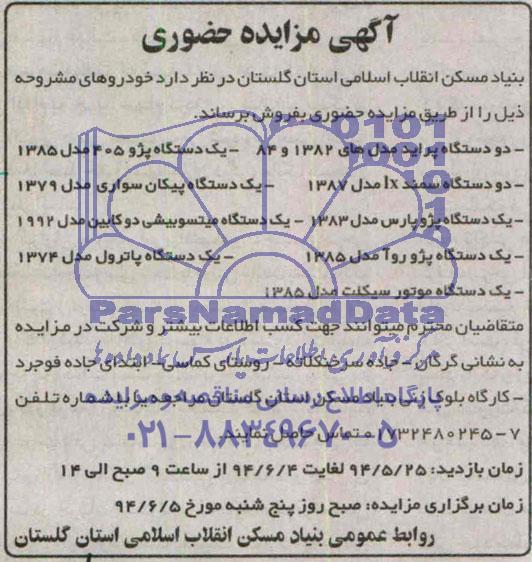 آگهی مزایده حضوری
بنیاد مسکن انقلاب اسلامی استان گلستان در نظر دارد خودروهای مشروحه
ذیل را از طریق مزایده حضوری بفروش برساند.
- دو دستگاه پراید مدل های ۱۳۸۲ و ۸۴ - یک دستگاه پژو ۴۰۵ مدل ۱۳۸۵
- دو دستگاه سمند lx مدل ۱۳۸۷ - یک دستگاه پیکان سواری مدل ۱۳۷۹
- یک دستگاه پژو پارس مدل ۱۳۸۳ - یک دستگاه میتسوبیشی دو کابین مدل ۱۹۹۲
- یک دستگاه پژو روآ مدل ۱۳۸۵ - یک دستگاه پاترول مدل ۱۳۷۴
- یک دستگاه موتور سیکلت مدل ۱۳۸۵
ParsNamadData
متقاضیان محترم میتوانند جهت کسب اطلاعات بیشتر و شرکت در مزایده
مرکز فرآوری اطلاعات پارس نماد داده ها
به نشانی گرگان - جاده سرخنکلاته - روستای کماسی - ابتدای جاده فوجرد
پایگاه اطلاع رسانی مناقصه و مزایده
- کارگاه بلوک زنی بنیاد مسکن استان گلستان مراجعه یا با شماره تلفن
۰۲۱-۸۸۳۴۹۶۷۰-۵
۷-۱۷۳۲۴۸۰۲۴۵ تماس حاصل نمایند.
زمان بازدید: ۹۴/۵/۲۵ لغایت ۹۴/۶/۴ از ساعت ۹ صبح الی ۱۴
زمان برگزاری مزایده: صبح روز پنج شنبه مورخ ۹۴/۶/۵
روابط عمومی بنیاد مسکن انقلاب اسلامی استان گلستان